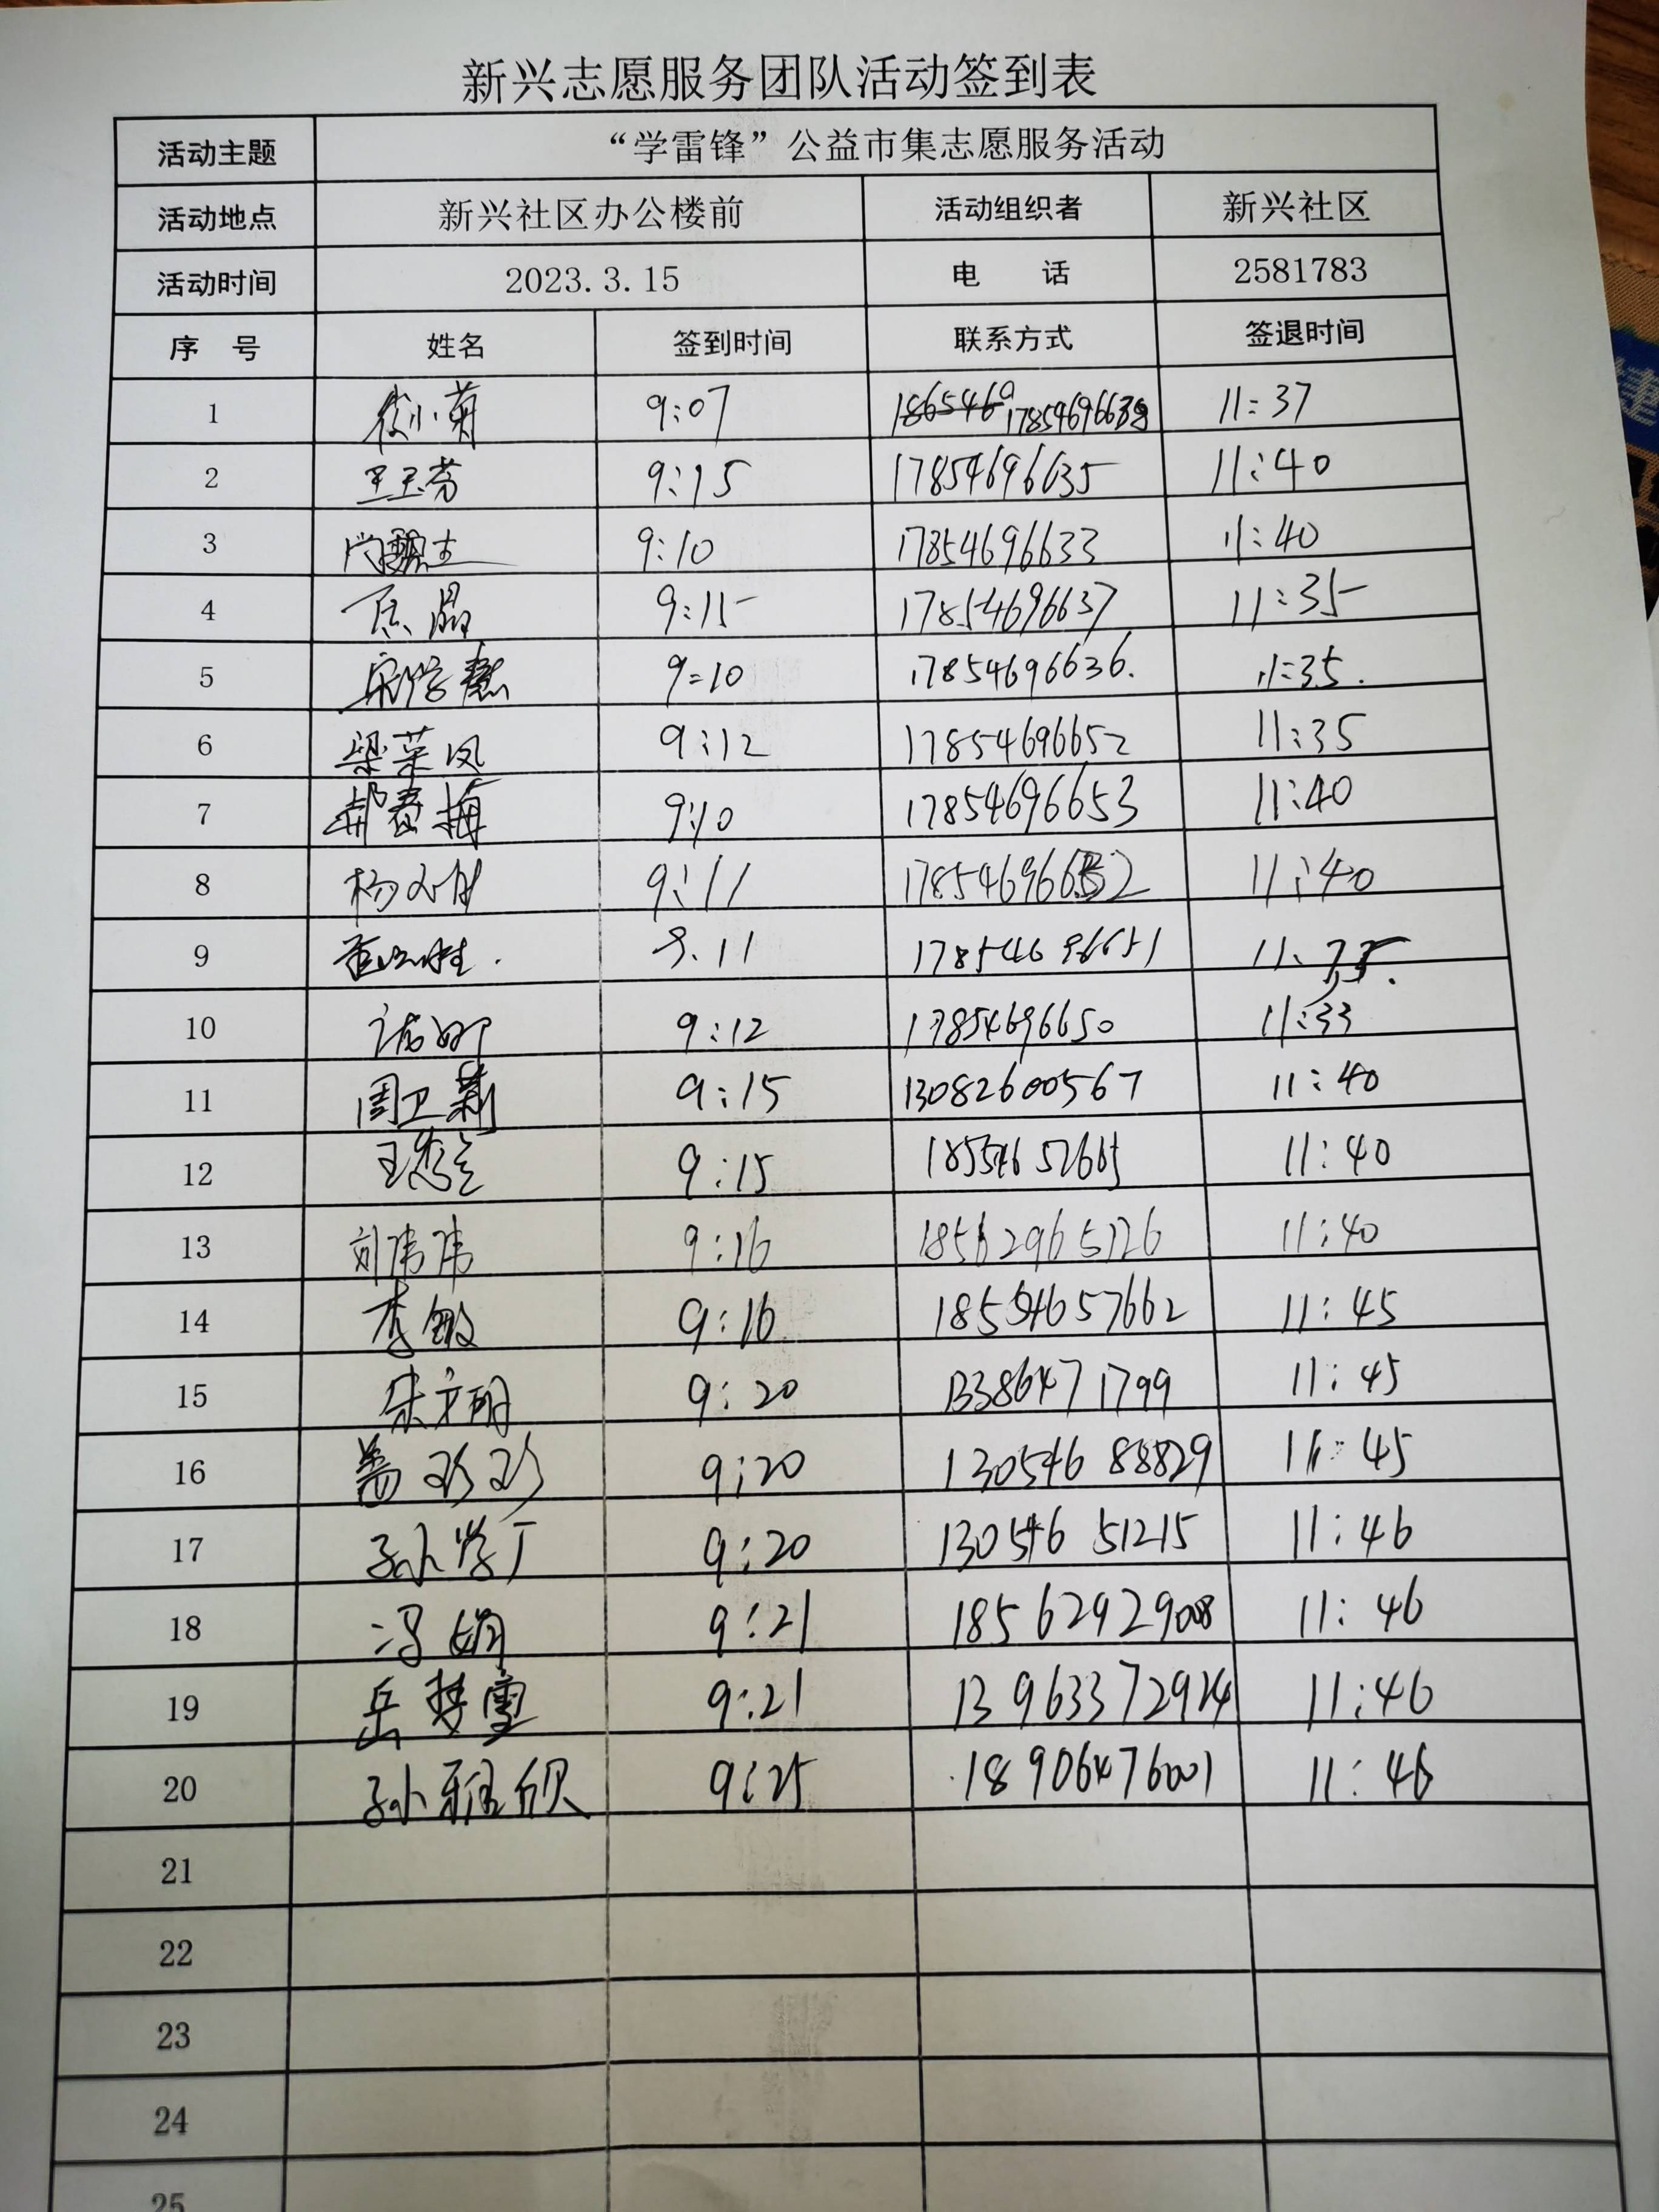 新兴志愿服务团队活动签到表
活动主题 “学雷锋”公益市集志愿服务活动
活动地点 新兴社区办公楼前 活动组织者 新兴社区
活动时间 2023.3.15 电 话 2581783
序 号 姓名 签到时间 联系方式 签退时间
1 徐小菊 9:07 11:37
2 王玉芬 9:15 17854696635 11:40
3 9:10 17854696633 11:40
4 晶 9:15 17854696637 11:35
5 宋学慧 9:10 17854696636. 11:35.
6 梁菜凤 9:12 17854696652 11:35
7 郝春梅 9:10 17854696653 11:40
8 杨 9:11 11:40
9 9.11 17854696651
10 9:12 17854696650 11:33
11 周卫新 9:15 13082600567 11:40
12 王 9:15 11:40
13 刘伟伟 9:16 11:40
14 李敏 9:16 18554657662 11:45
15 9:20 13386471799 11:45
16 盖珍珍 9:20 13054688829 11:45
17 孙学厂 9:20 13054651215 11:46
18 冯娟 9:21 18562929008 11:46
19 岳梦雪 9:21 11:46
20 孙雅欣 9:25 18906476001 11:46
21
22
23
24
25